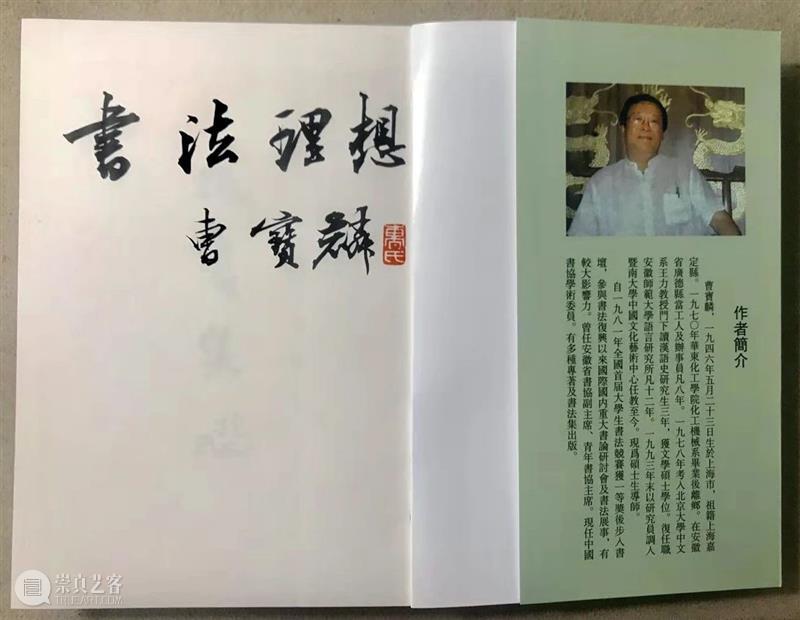 書法理想
曹寶麟
曹氏
作者簡介
曹寶麟，一九四六年五月二十三日生於上海市，祖籍上海嘉
定縣。一九七〇年華東化工學院化工機械系畢業後離鄉。在安徽
省廣德縣當工人及辦事員凡八年。一九七八年考入北京大學中文
系王力教授門下讀漢語史研究生三年，獲文學碩士學位。復任職
安徽師範大學語言研究所凡十二年。一九九三年末以研究員調入
暨南大學中國文化藝術中心任教至今。現爲碩士生導師。
自一九八一年全國首屆大學生書法競賽獲一等獎後步入書
壇，參與書法復興以來國際國內重大書論研討會及書法展事，有
較大影響力。曾任安徽省書協副主席、青年書協主席。現任中國
書協學術委員。有多種專著及書法集出版。
崇真艺客
TRUEART.COM